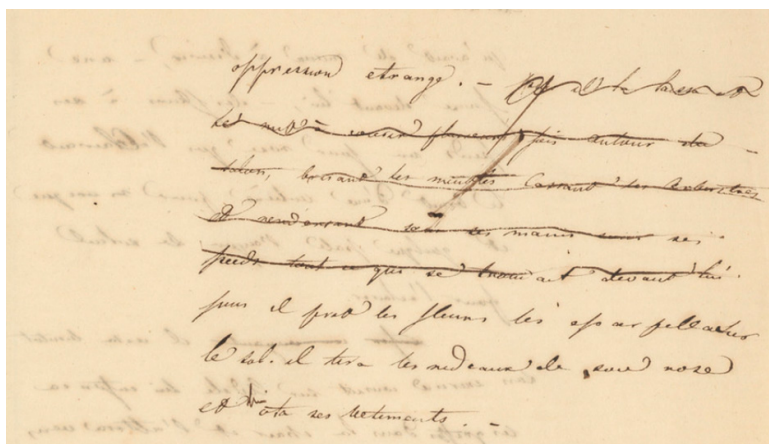 oppression etrange. –
et se mit à courir plusieurs fois autour du
salon, brisant les meubles cassant les
et renversant sous ses mains sous ses
pieds tout ce qui se trouvait devant lui.
puis il prit les fleurs les eparpilla sur
le sol. il tira les rideaux de soie rose
et ota ses vetements. –